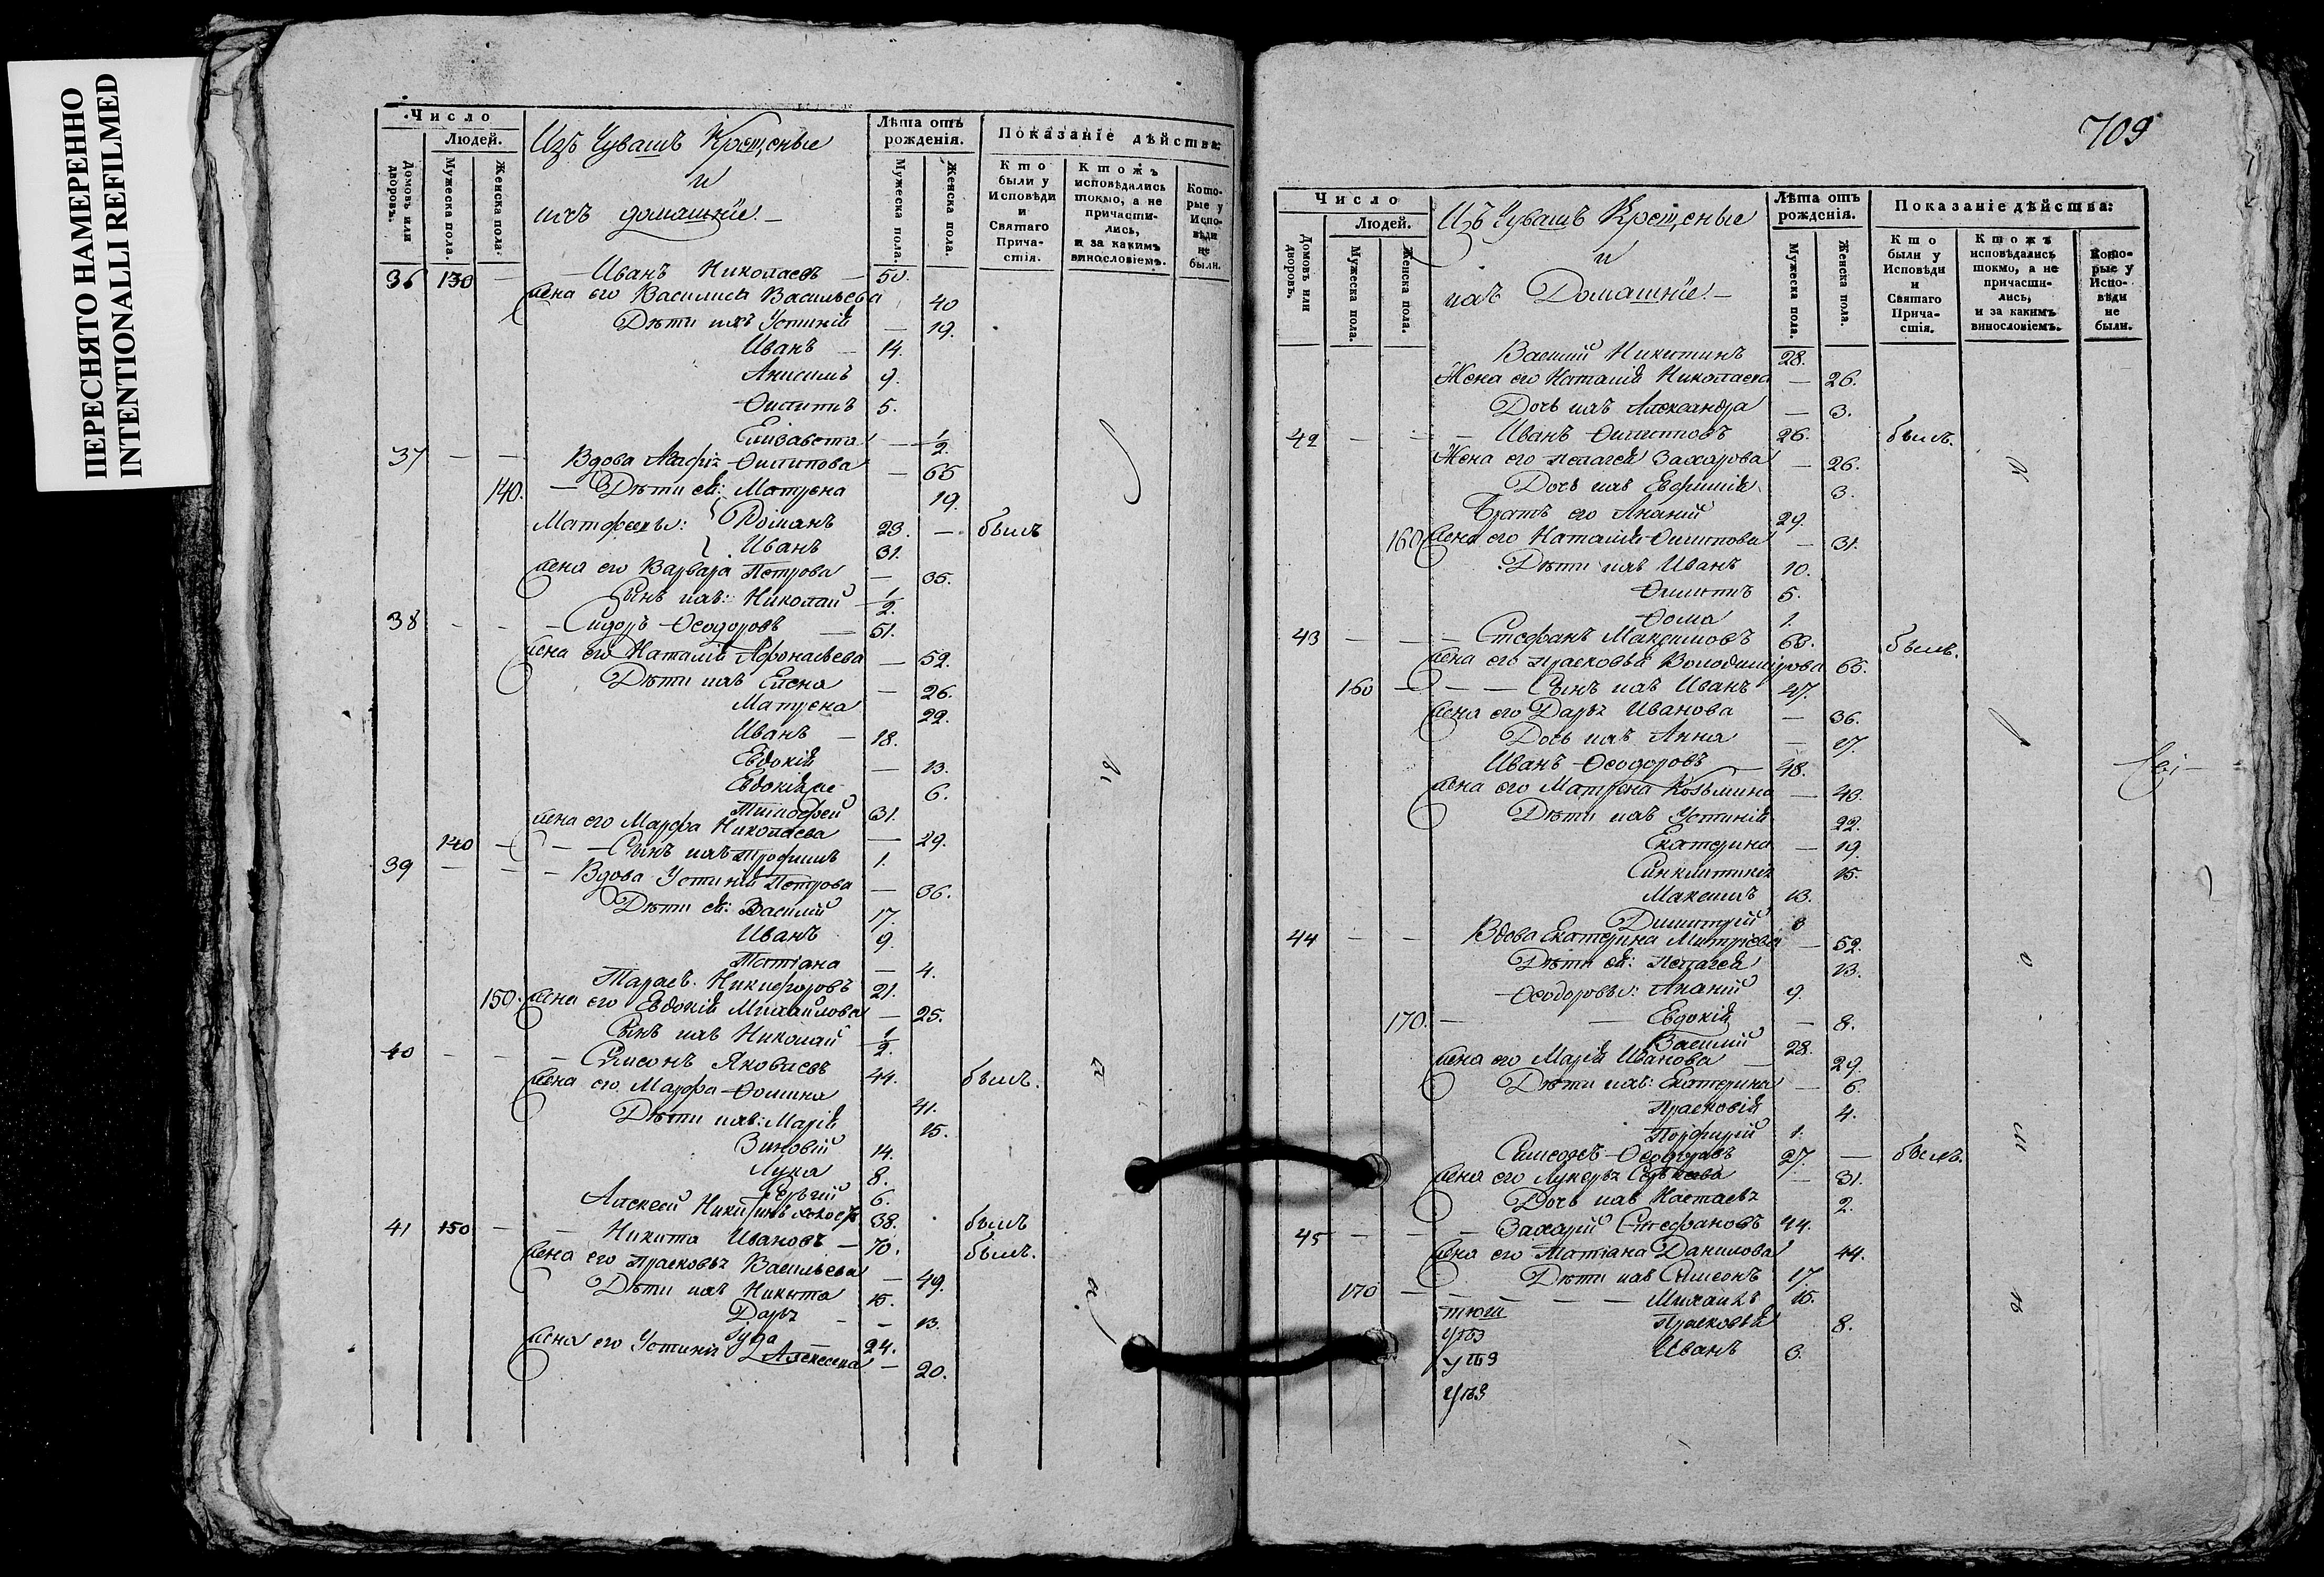 ПЕРЕСНЯТО НАМЕРЕННО
INTENTIONALLI REFILMED
Число
Людей.
Домовъ или дворовъ.
Мужеска пола.
Женска пола.
Изъ Чувашъ Крещеные
и
ихъ домашніе
Лѣта отъ рожденія.
Мужеска пола.
Женска пола.
Показаніе дѣйства:
Кто были у Исповѣди и Святаго Причастія.
Ктожъ исповѣдались токмо, а не причастились, и за какимъ винословіемъ.
Которые у Исповѣди не были.
36 130 — Иванъ Николаевъ — 50.
Жена его Василиса Васильева 40
Дѣти ихъ Устинія — 19.
Иванъ — 14.
Анисимъ 9.
Филиппъ 5.
Елизавета — 1/2.
37 — — Вдова Филипова — 65
140. — Дѣти ея: Матрена 19.
Матфеевы: Романъ 23. — былъ
Иванъ 31.
Жена его Варвара Петрова — 35.
Сынъ ихъ: Николай 1/2.
38 - - - Сидоръ Феодоровъ — 51.
Жена его Наталія Афонасьева — 52.
Дѣти ихъ Елена — 26.
Матрена 22.
Иванъ — 18.
Евдокія — 13.
Евдокія же 6.
Тимофей 31.
Жена его Марфа Николаева — 29.
140 - — — Сынъ ихъ Трофимъ 1.
39 — - - Вдова Устинія Петрова — 36.
Дѣти ея: Василій 17.
Иванъ 9.
Татіана — 4.
Тарасъ Никифоровъ 21.
150. Жена его Евдокія Михайлова — 25.
Сынъ ихъ Николай 1/2.
40 - - - Симеонъ Яковлевъ 44. былъ.
Жена его Марфа Фомина 41.
Дѣти ихъ: Марія 15.
Зиновій 14.
Лука 8.
Сергій 6.
Алексей Никитинъ 38. былъ
41 150 - - Никита Ивановъ — 70. былъ.
Жена его Прасковья Васильева — 49.
Дѣти ихъ Никита 15.
Дарья - - 13.
24.
Жена его Устинія Алексеева — 20.
709
Число
Людей.
Домовъ или дворовъ.
Мужеска пола.
Женска пола.
Изъ Чувашъ Крещеные
и
ихъ Домашніе
Лѣта отъ рожденія.
Мужеска пола.
Женска пола.
Показаніе дѣйства:
Кто были у Исповѣди и Святаго Причастія.
Ктожъ исповѣдались токмо, а не причастились, и за какимъ винословіемъ.
Которые у Исповѣди не были.
Василий Никитинъ 28.
Жена его Наталія Николаева — 26.
Дочь ихъ Александра — 3.
42 - - - Иванъ Филипповъ 26. былъ.
Жена его Пелагея Захарова — 26.
Дочь ихъ Евфимія 3.
Братъ его Ананій 29.
160 Жена его Наталія Филипова — 31.
Дѣти ихъ Иванъ 10.
Филиппъ 5.
Фома 1.
43 — - - Стефанъ Максимовъ 68. былъ.
Жена его Прасковья Володимірова 65.
160 - — — Сынъ ихъ Иванъ 47.
Жена его Дарья Иванова — 36.
Дочь ихъ Анна — 17.
Иванъ Феодоровъ — 48.
Жена его Матрена Козьмина — 43.
Дѣти ихъ Устинія 22.
Екатерина — 19.
Синклитикія 15.
Максимъ 13.
Димитрій
44 — - Вдова Екатерина Митріева — 52.
Дѣти ея: Пелагея 13.
Феодоровы: Ананій 9.
170. — — Евдокія — 8.
Василій 28.
Жена его Марія Иванова — 29.
Дѣти ихъ: Екатерина — 6.
Прасковія 4.
Порфирій 1.
Симеонъ Феодоровъ 27. — былъ.
Жена его Лукерья — 31.
Дочь ихъ Настасья 2.
45 — - - Захарій Стефановъ 44.
Жена его Татіана Данилова 44.
Дѣти ихъ Симеонъ 17.
170 — — — Михаилъ 15.
Прасковья 8.
Иванъ 3.